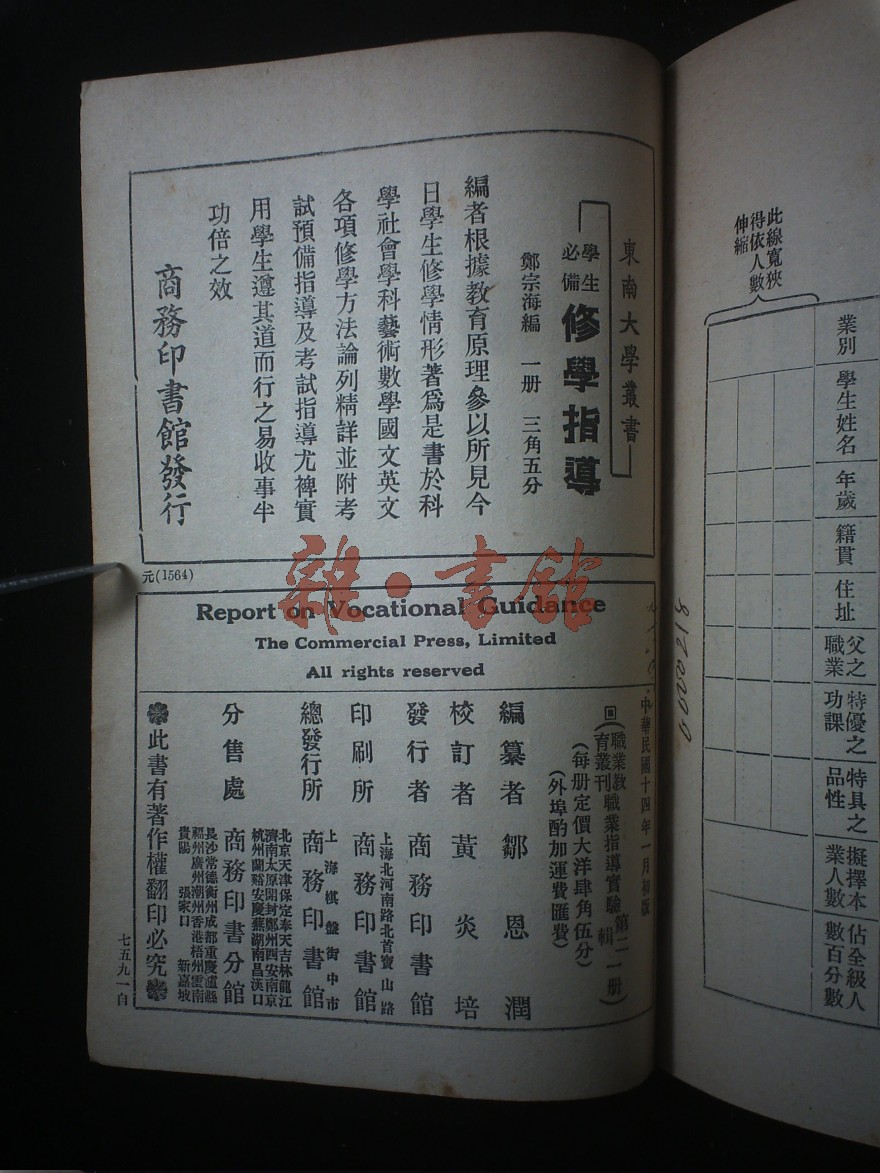 東南大學叢書
學生
必備
修學指導
鄭宗海編 一册 三角五分
編者根據教育原理參以所見今
日學生修學情形著爲是書於科
學社會學科藝術數學國文英文
各項修學方法論列精詳並附考
試預備指導及考試指導尤裨實
用學生遵其道而行之易收事半
功倍之效
商務印書館發行
元(1564)
雜·書館
Report on Vocational Guidance
The Commercial Press, Limited
All rights reserved
中華民國十四年一月初版
(職業教
育叢刊
職業指導實驗
第二
輯
一册)
(每册定價大洋肆角伍分)
(外埠酌加運費匯費)
編纂者 鄒恩潤
校訂者 黃炎培
發行者 商務印書館
印刷所
上海北河南路北首寶山路
商務印書館
總發行所
上海棋盤街中市
商務印書館
分售處
北京天津保定奉天吉林龍江
濟南太原開封鄭州西安南京
杭州蘭谿安慶蕪湖南昌漢口
商務印書分館
長沙常德衡州成都重慶瀘縣
福州廣州潮州香港梧州雲南
貴陽 張家口 新嘉坡
此書有著作權翻印必究
七五九一自
此線寬狹
得依人數
伸縮
業別
學生姓名
年歲
籍貫
住址
父之職業
特優之功課
特具之品性
擬擇本業人數
佔全級人數百分數